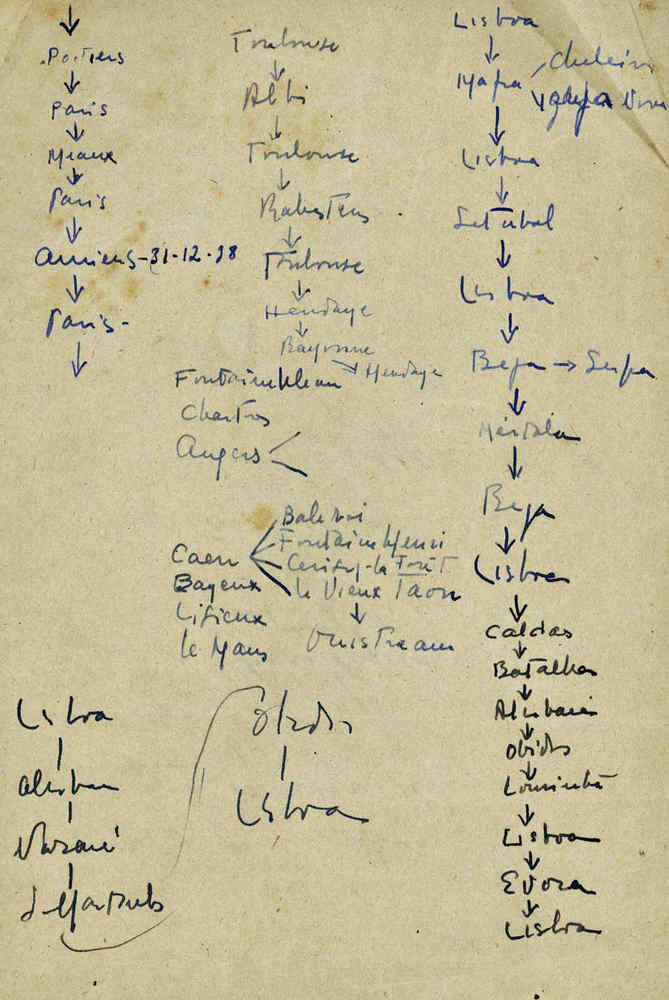 ↓
Poitiers
↓
Paris
↓
Meaux
↓
Paris
↓
Amiens-31-12-38
↓
Paris-
↓
Toulouse
↓
Albi
↓
Toulouse
↓
Rabastens
↓
Toulouse
↓
Hendaye
↓
Bayonne
→ Hendaye
Fontainebleau
Chartres
Angers
Caen
Bayeux
Lisieux
le Mans
Baleroi
Fontaine Henri
Cerisy-la Forêt
le Vieux
Taon
↓
Ouistream
Lisboa
↓
Mafra
Cheleiros
Lisboa
↓
Setubal
↓
Lisboa
↓
Beja → Serpa
↓
Mértola
↓
Beja
↓
Lisboa
↓
Caldas
↓
Batalha
↓
Alcobaça
↓
Obidos
↓
Lourinhã
↓
Lisboa
↓
Evora
↓
Lisboa
Lisboa
Nazaré
S. Martinho
Obidos
Lisboa